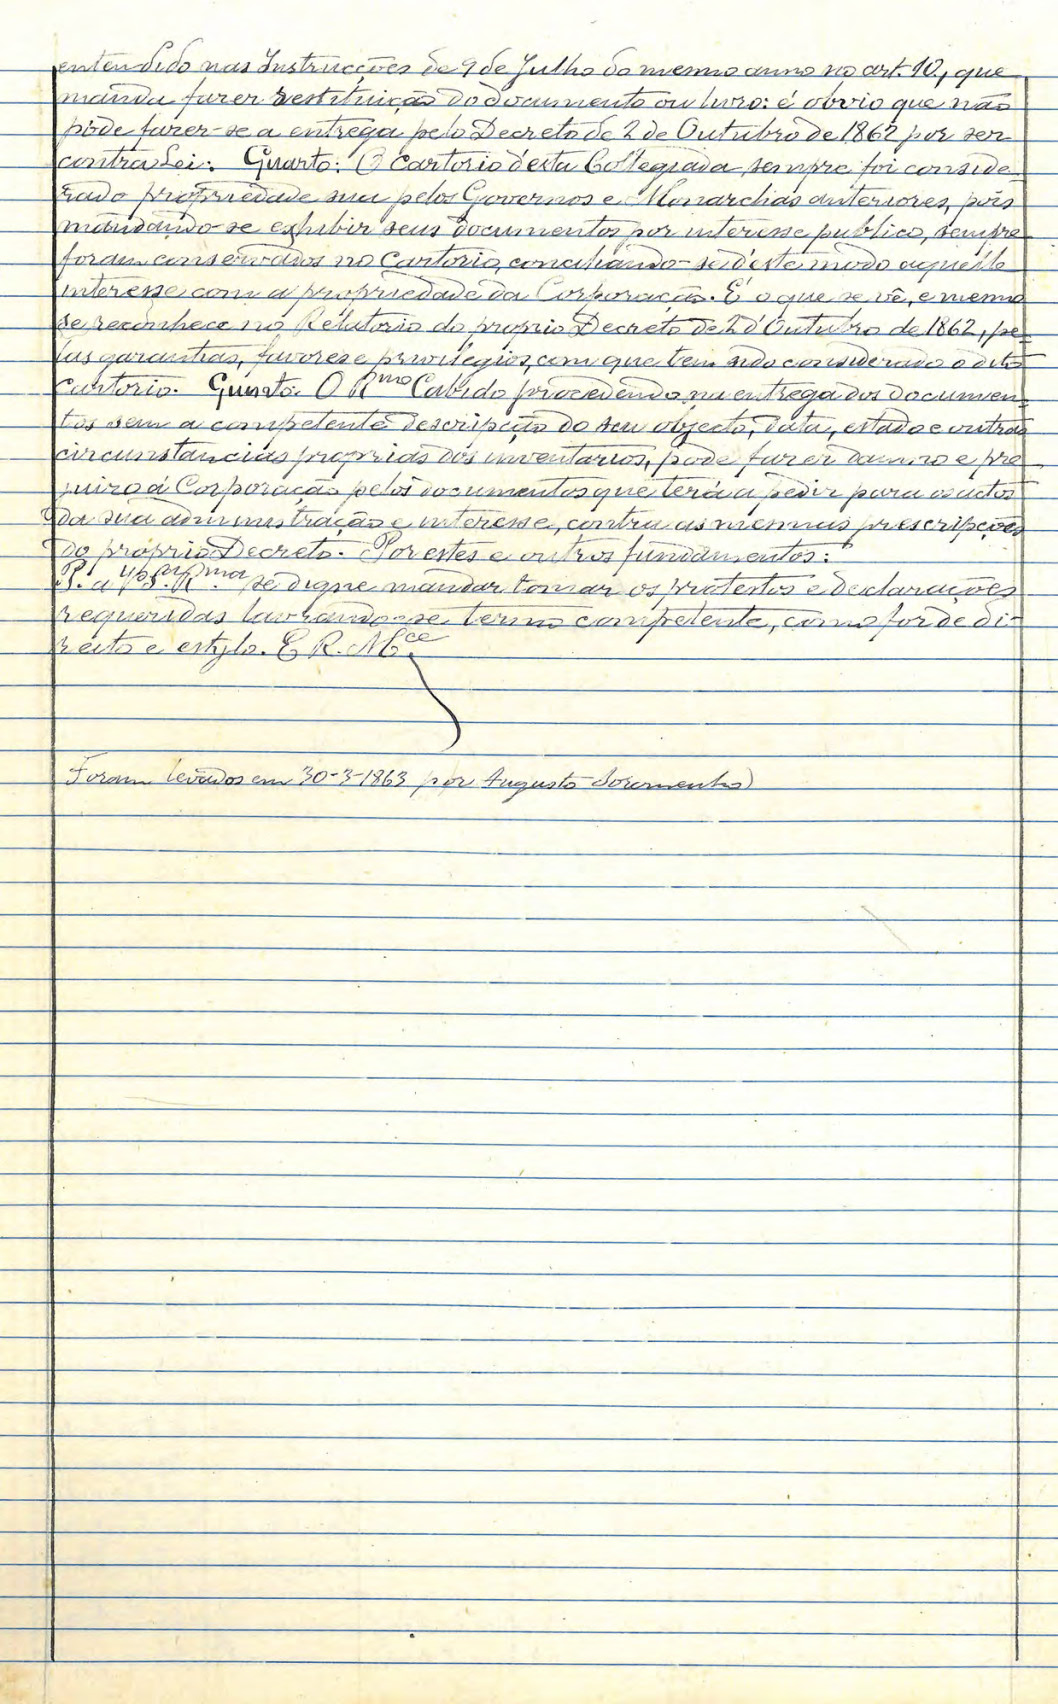 entendido nas Instrucções de 9 de Julho do mesmo anno no art. 10, que
manda fazer restituição do documento ou livro: é obvio que não
póde fazer-se a entrega pelo Decreto de 2 de Outubro de 1862 por ser
contra Lei. Quarto: O cartorio d'esta Collegiada sempre foi conside-
rado propriedade sua pelos Governos e Monarchias anteriores, pois
mandando-se exhibir seus documentos por interesse publico, sempre
foram conservados no Cartorio, conciliando-se d'este modo aquelle
interesse com a propriedade da Corporação. É o que se vê, e mesmo
se reconhece no Relatorio do proprio Decreto de 2 d'Outubro de 1862, pe-
las garantias, favores e privilegios, com que tem sido considerado o dito
Cartorio. Quinto. O Rmo Cabido procedendo na entrega dos documen-
tos sem a competente descripção do seu objecto, data, estado e outras
circunstancias proprias dos inventarios, pode fazer damno e pre-
juizo á Corporação pelos documentos que terá a pedir para os actos
da sua administração e interesse, contra as mesmas prescripções
do proprio Decreto. Por estes e outros fundamentos:
P. a Rma se digne mandar tomar os protestos e declarações
requeridas lavrando-se termo competente, como for de di-
reito e estylo. E. R. Mce
Foram levados em 30-3-1863 por Augusto Soromenho)